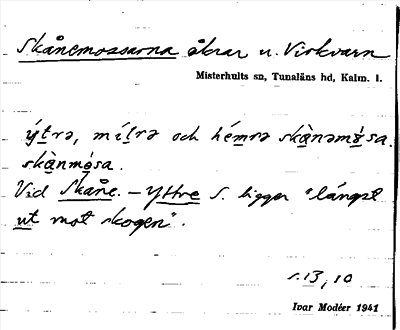 Skånemossarna åkrar u. Virkvarn
Misterhults sn, Tunaläns hd, Kalm. l.
ýtrə, mítrə och hémrə skànəmo̊sa.
skànmo̊sa.
Vid Skåne. – Yttre S. ligger "längst
ut mot skogen".
s. 13, 10
Ivar Modéer 1941